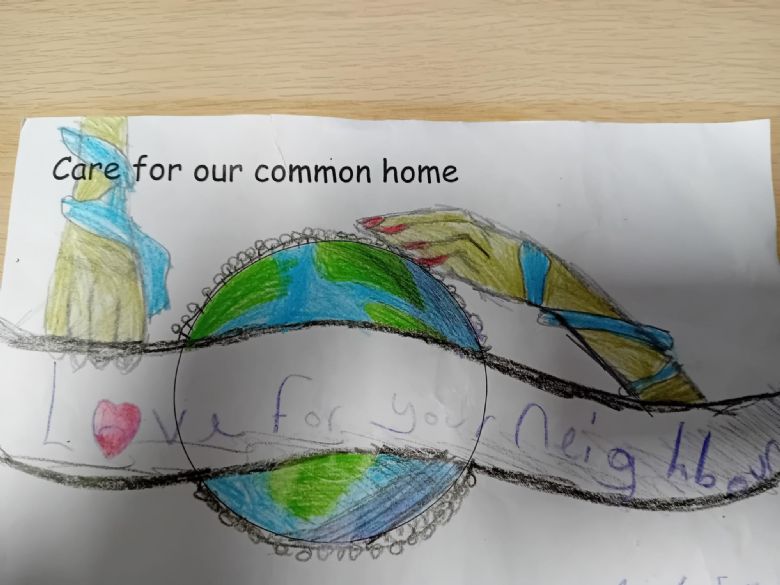 Care for our common home
Love for your neighbour